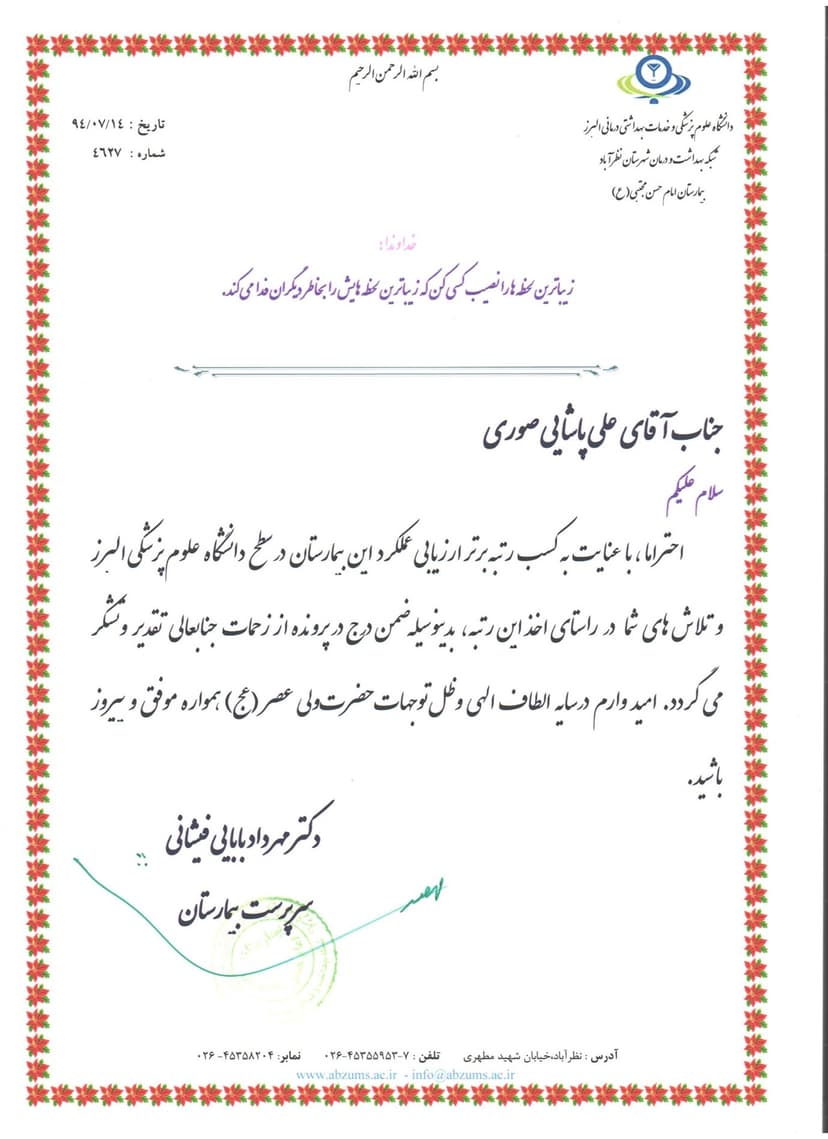 بسم الله الرحمن الرحیم
دانشگاه علوم پزشکی و خدمات بهداشتی درمانی البرز
شبکه بهداشت و درمان شهرستان نظرآباد
بیمارستان امام حسن مجتبی (ع)
تاریخ : ۹٤/۰۷/۱٤
شماره : ٤٦۲۷
خداوندا:
زیباترین لحظه ها را نصیب کسی کن که زیباترین لحظه هایش را بخاطر دیگران فدا می کند.
جناب آقای علی پاشایی صوری
سلام علیکم
احتراما، با عنایت به کسب رتبه برتر ارزیابی عملکرد این بیمارستان در سطح دانشگاه علوم پزشکی البرز
و تلاش های شما در راستای اخذ این رتبه، بدینوسیله ضمن درج در پرونده از زحمات جنابعالی تقدیر و تشکر
می گردد. امید وارم در سایه الطاف الهی و ظل توجهات حضرت ولی عصر (عج) همواره موفق و پیروز
باشید.
دکتر مهرداد بابایی فیشانی
سرپرست بیمارستان
آدرس : نظرآباد،خیابان شهید مطهری تلفن : ۷-۴۵۳۵۵۹۵۳-۰۲۶ نمابر: ۴۵۳۵۸۲۰۴- ۰۲۶
www.abzums.ac.ir - info@abzums.ac.ir